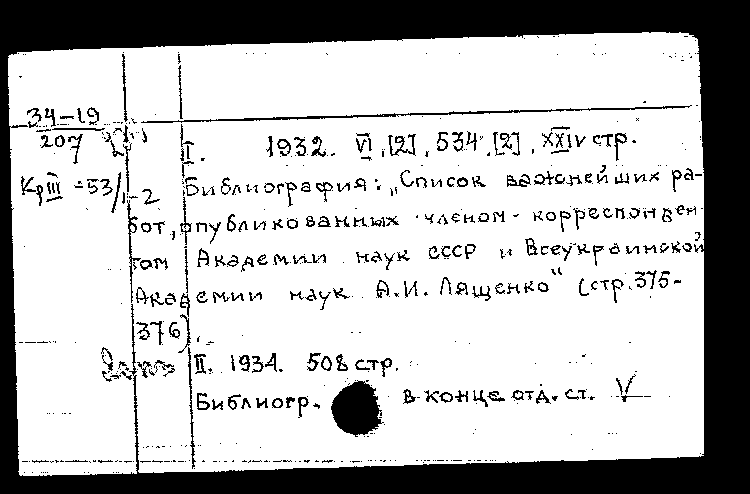 34-19
207
I. 1932. VI, [2], 534, [2], XXIV стр.
Кр III -53/1-2
Библиография: „Список важнейших ра-
бот, опубликованных членом-корреспонден-
том Академии наук СССР и Всеукраинской
Академии наук А.И. Лященко" (стр. 375-
376).
II. 1934. 508 стр.
Библиогр. в конце отд. ст. V